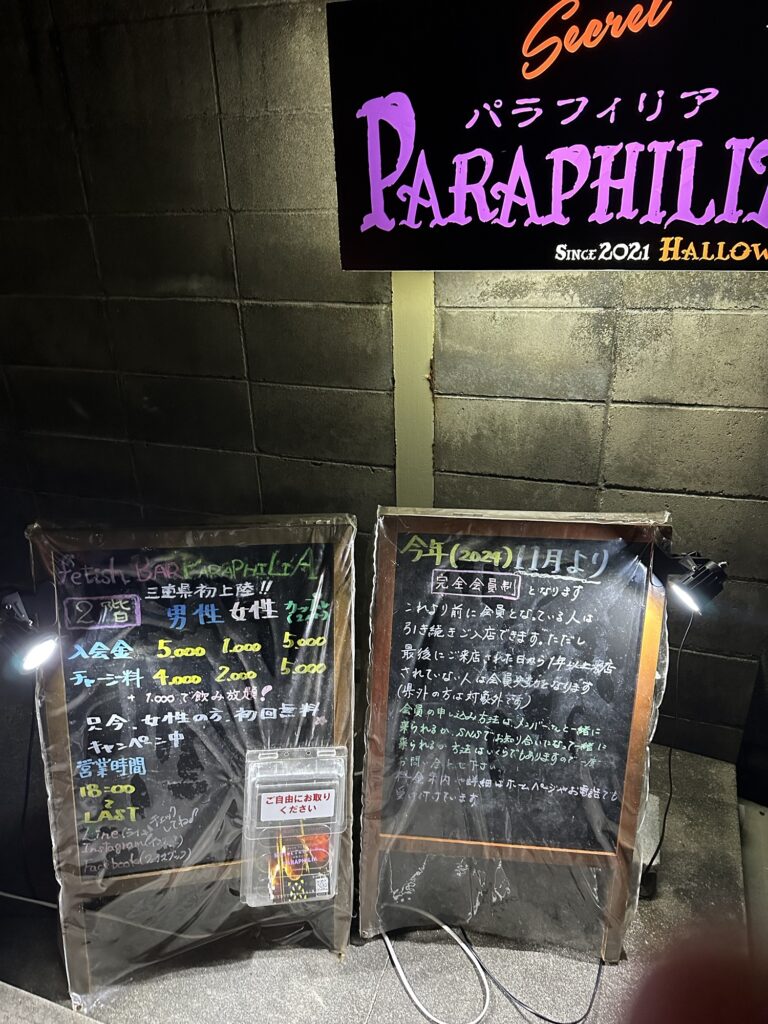 Secret
パラフィリア
PARAPHILIA
SINCE 2021 HALLOW
Fetish BAR PARAPHILIA
三重県初上陸!!
2階 男性 女性
入会金 5,000 1,000 5,000
チャージ料 4,000 2,000 5,000
+1,000で飲み放題!
只今、女性の方、初回無料
キャンペーン中
営業時間
18:00
~
LAST
Line
Instagram
Facebook(フェイスブック)
ご自由にお取り
ください
PARAPHILIA
今年(2024)11月より
完全会員制 となります
これより前に会員となっている人は
引き続きご入店できます。ただし
最後にご来店された日から1年以上来店
されていない人は会員失効となります
(県外の方は対象外です)
会員の申し込み方法は、メンバーさんと一緒に
来られるか、SNSでお知り合いになって一緒に
来られるか方法はいくらでもありますので一度
お問い合わせ下さい
料金案内や詳細はホームページやお電話でも
受け付けています